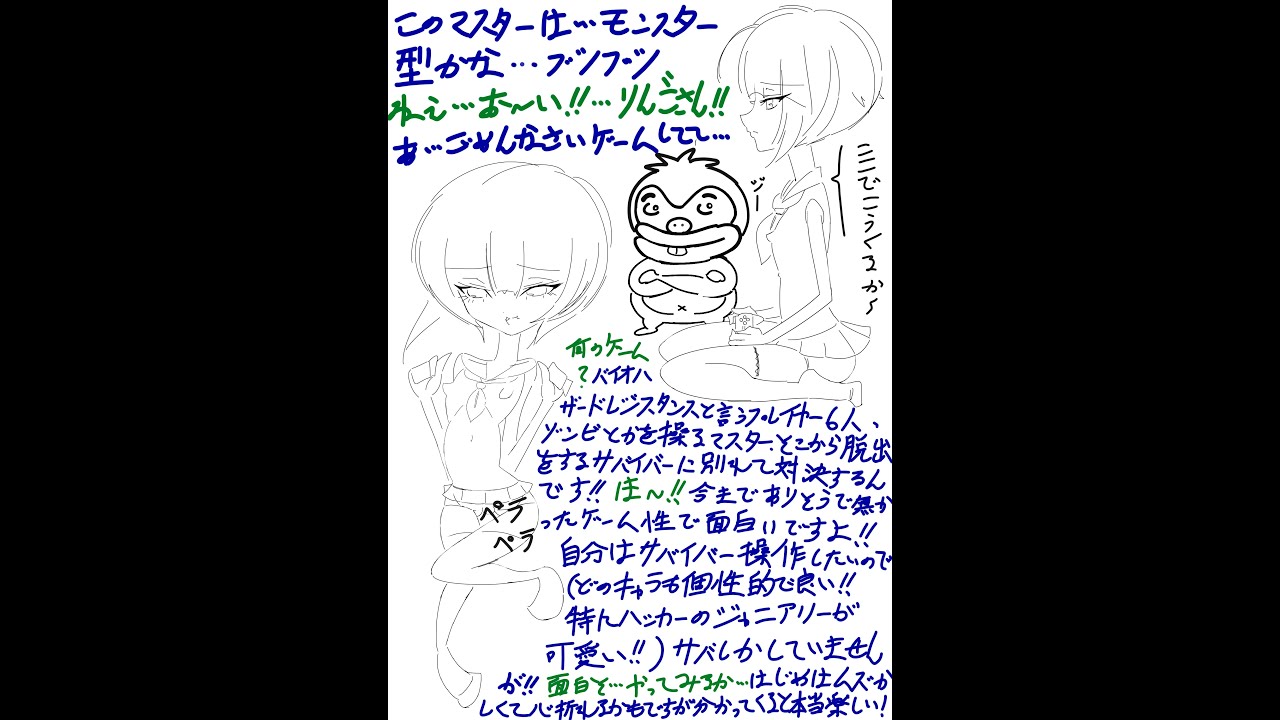 このマスターは…モンスター
型かな…ブツブツ
ねえ…お〜い!!…りんごさん!!
あ…ごめんなさいゲームしてて…
ここでこうくるか〜
ジー
何のゲーム
?バイオハ
ザードレジスタンスと言うプレイヤー6人、
ゾンビとかを操るマスター、そこから脱出
をするサバイバーに別れて対決するん
です!!ほ〜!!今までありそうで無か
ったゲーム性で面白いですよ!!
ペラ
ペラ
自分はサバイバー操作したいので
(どのキャラも個性的で良い!!
特にハッカーのジャニアリーが
可愛い!!)サバしかしていません
が!!面白そ…やってみるか…はじめはムズか
しくて心折れるかもですが分かってくると本当楽しい!